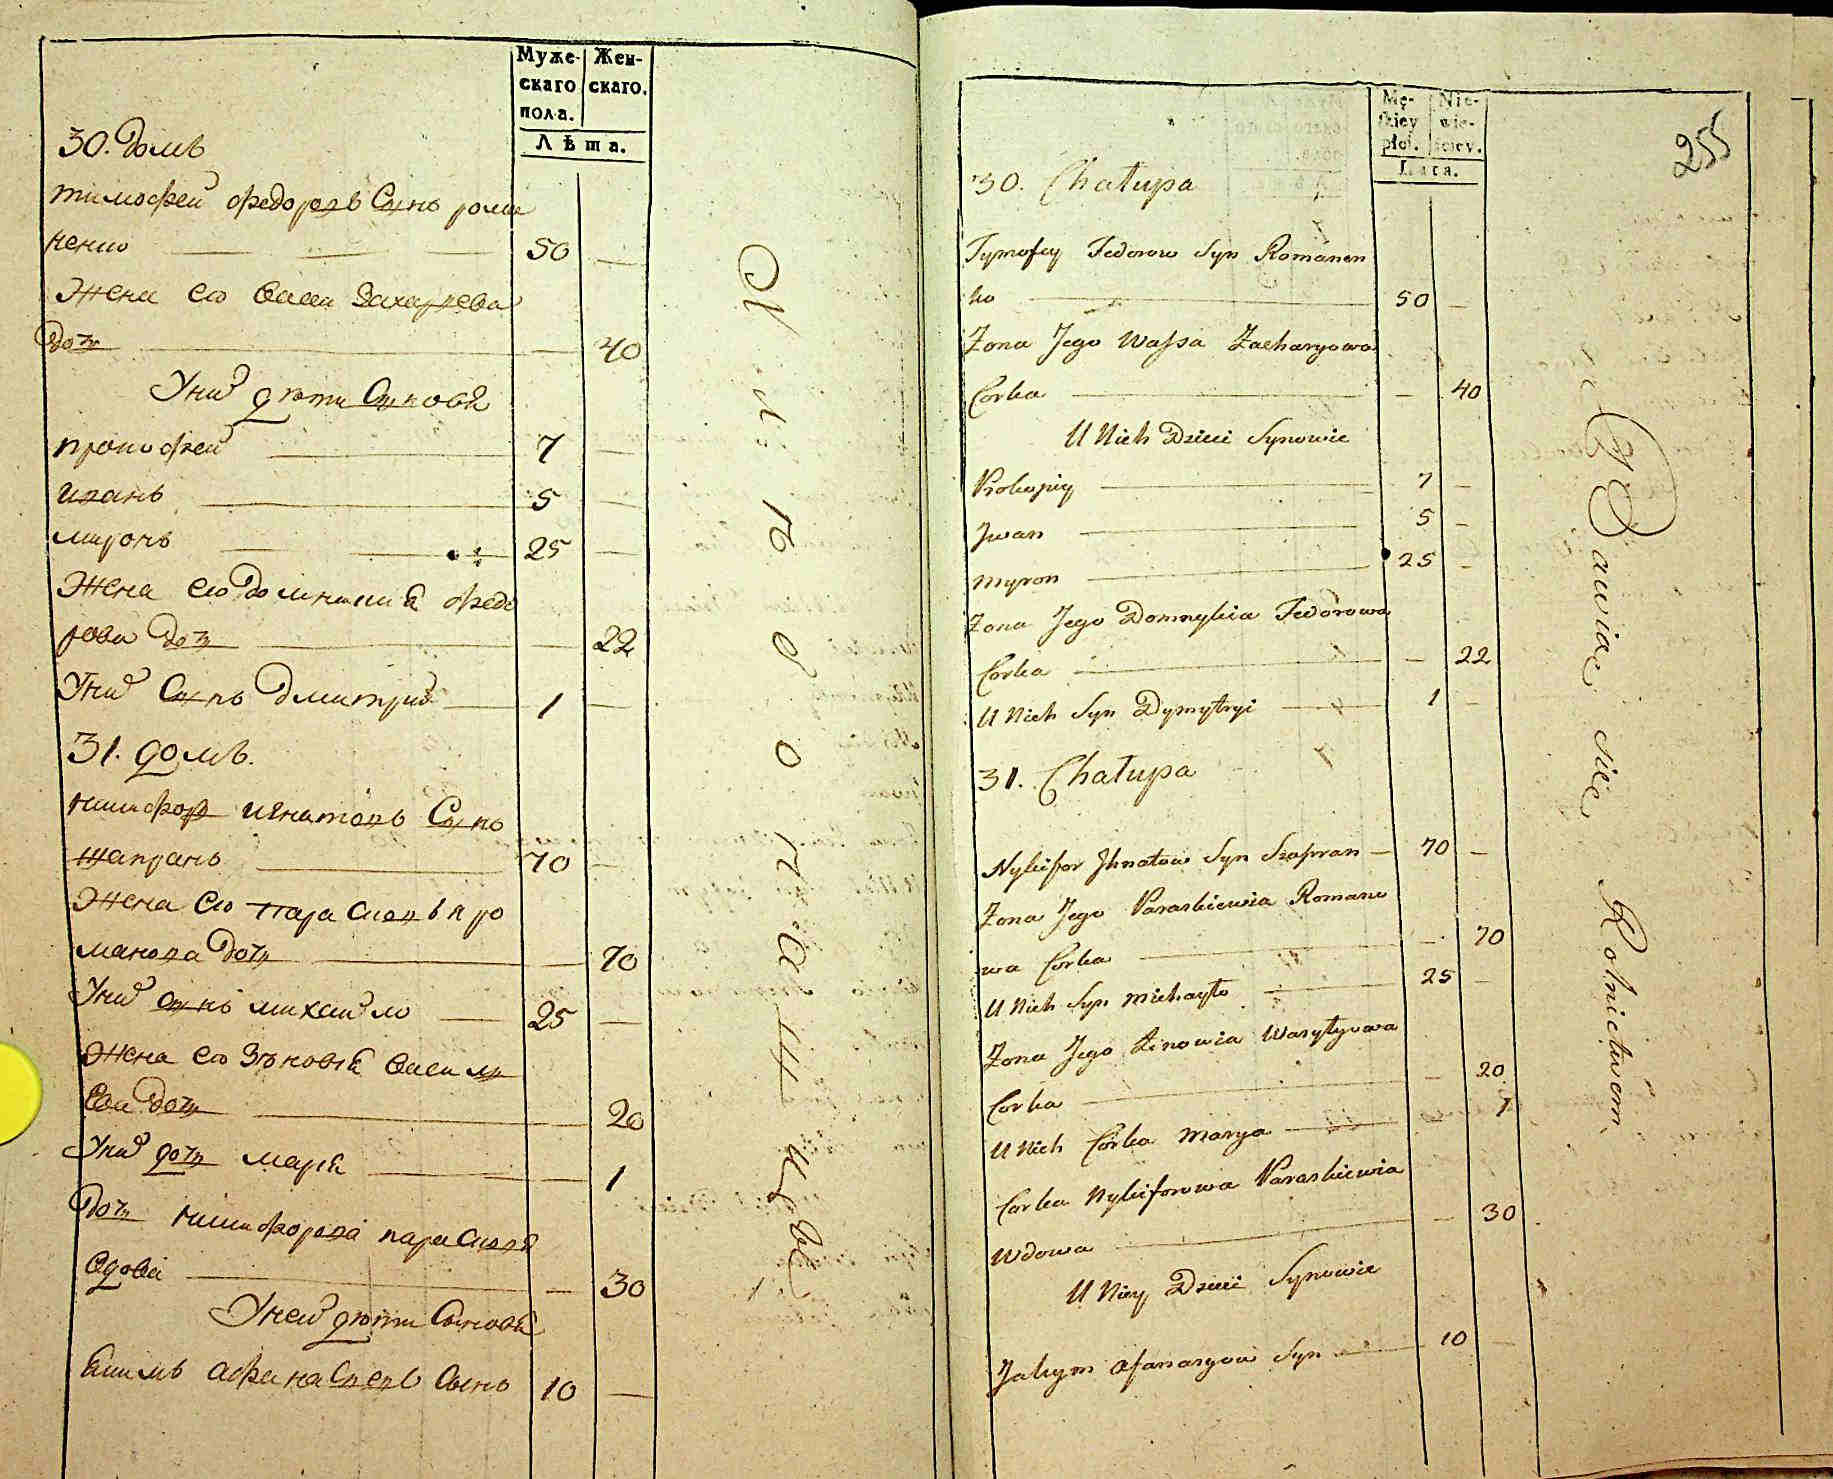 Муже-
скаго
пола.
Жен-
скаго.
Лѣта.
30. домъ
тимофей федоровъ Сынъ рома
ненко 50
Жена его васса Захарьева
дочь 40
У них дѣти Сыновья
прокофей 7
иванъ 5
миронъ 25
Жена его домникия федо
рова дочь 22
У них Сынъ дмитрий 1
31. домъ.
никифоръ игнатовъ Сынъ
шапранъ 70
Жена его Парасковья ро
манова дочь 70
У них сынъ михайло 25
Жена его Зѣновия васил
ева дочь 20
У них дочь мария 1
дочь никифорова парасковя
вдова 30
У ней дѣти Сыновья
Акимъ афанасиевъ сынъ 10
Mę-
skiey
płci.
Nie-
wie-
sciey.
Lata.
255
30. Chałupa
Tymofey Fedorow Syn Romanen
ko 50
Zona Jego Wassa Zacharyowa
Corka 40
U Nich Dzieci Synowie
Prokopiy 7
Jwan 5
Myron 25
Zona Jego Domnykia Fedorowa
Corka 22
U Nich Syn Dymytryi 1
31. Chałupa
Nykifor Jhnatow Syn Szapran 70
Zona Jego Paraskiewia Romano
wa Corka 70
U Nich Syn Michayło 25
Zona Jego Zinowia Wasylyowa
Corka 20
U Nich Corka Marya 1
Corka Nykiforowa Paraskiewia
Wdowa 30
U Niey Dzieci Synowie
Jakym Afanasyow Syn 10
Bawią się Rolnictwem